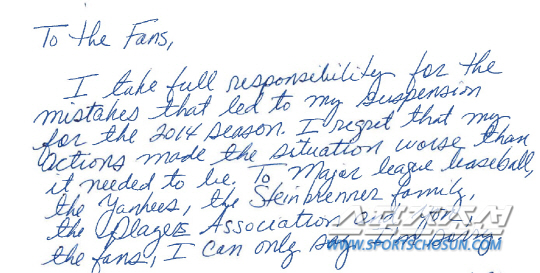 To the Fans,
I take full responsibility for the
mistakes that led to my suspension
for the 2014 season. I regret that my
actions made the situation worse than
it needed to be. To Major league baseball,
the Yankees, the Steinbrenner family,
the Players Association and you,
the fans, I can only say I'm sorry
스포츠조선
WWW.SPORTSCHOSUN.COM